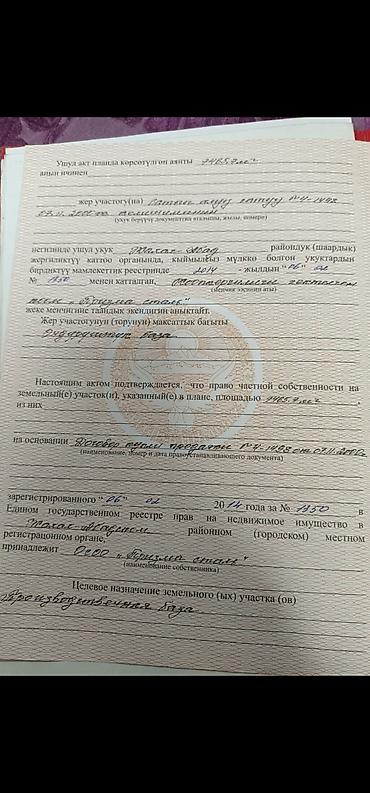 Ушул акт планда көрсөтүлгөн аянты 7465.7 м²
анын ичинен
жер участогу(на) Сатып алуу сатуу №4-1493
07.11.2000 келишиминин
(укук берүүчү документтин аталышы, жылы, номери)
негизинде ушул укук Жалал-Абад райондук (шаардык)
жергиликтүү каттоо органында, кыймылсыз мүлккө болгон укуктардын
бирдиктүү мамлекеттик реестринде 2014 - жылдын "06" 02
№ 1350 менен катталган,
(менчик ээсинин аты)
"Призма сталь"
жеке менчигине таандык экендигин аныктайт.
Жер участогунун (торунун) максаттык багыты
база
Настоящим актом подтверждается, что право частной собственности на
земельный(е) участок(и), указанный(е) в плане, площадью 7465.7 м²,
из них
на основании Договор купли продажи №4-1493 от 07.11.2000
(наименование, номер и дата правоустанавливающего документа)
зарегистрированного "06" 02 2014 года за № 1350 в
Едином государственном реестре прав на недвижимое имущество в
Жалал-Абадском районном (городском) местном
регистрационном органе,
принадлежит ОсОО "Призма сталь"
(наименование собственника)
Целевое назначение земельного (ых) участка (ов)
Производственная база